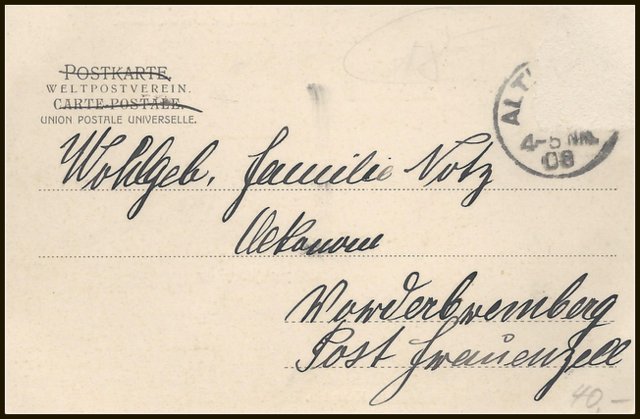 POSTKARTE.
WELTPOSTVEREIN.
CARTE POSTALE.
UNION POSTALE UNIVERSELLE.
ALT
4-5 NM.
08
Wohlgeb. Familie Notz
Oekonom
Vorderbremberg
Post Frauenzell
40,-